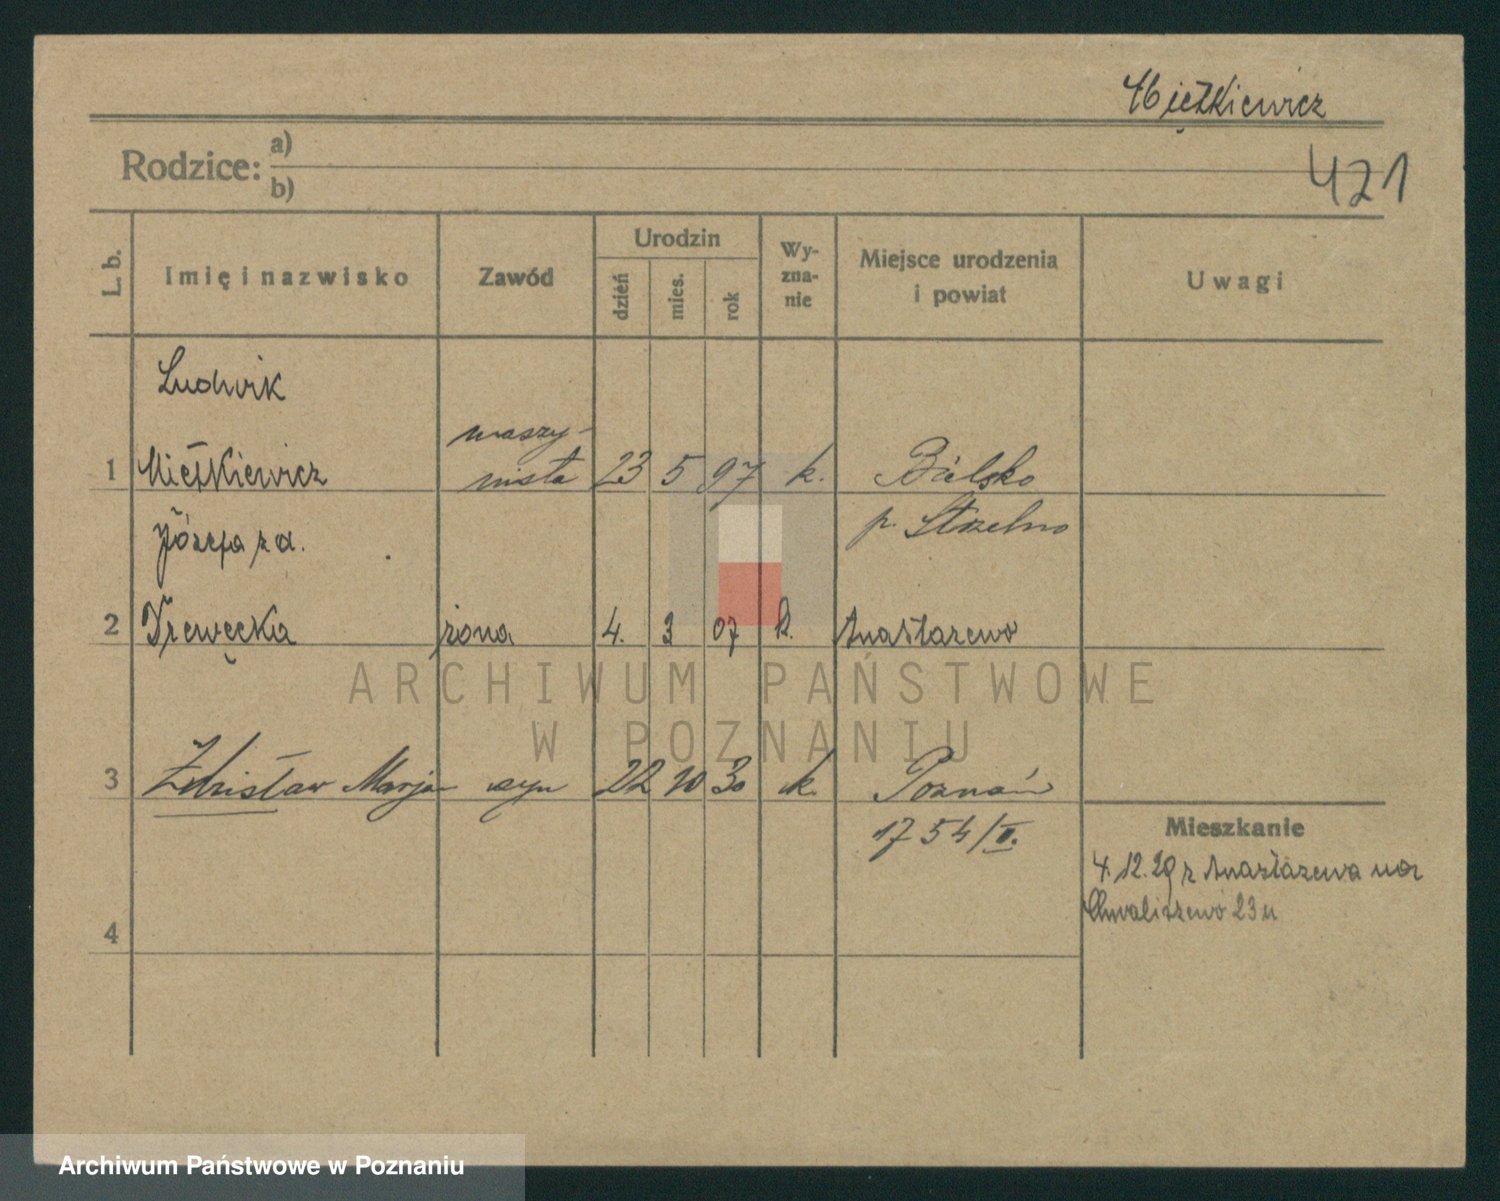 Miętkiewicz
Rodzice: a)
b)
421
L. b.
Imię i nazwisko
Zawód
Urodzin
dzień
mies.
rok
Wy-
zna-
nie
Miejsce urodzenia
i powiat
Uwagi
Ludwik
1 Miętkiewicz maszy-
nista 23 5 97 k. Bielsko
p. Strzelno
Józefa z d.
2 żona 4. 3 07 k. Anastazewo
3 Zdzisław Marja syn 22 10 30 k. Poznań
1754/II.
Mieszkanie
4.12.29 z Anastazewa na
Chwaliszewo 23
4
ARCHIWUM PAŃSTWOWE
W POZNANIU
Archiwum Państwowe w Poznaniu